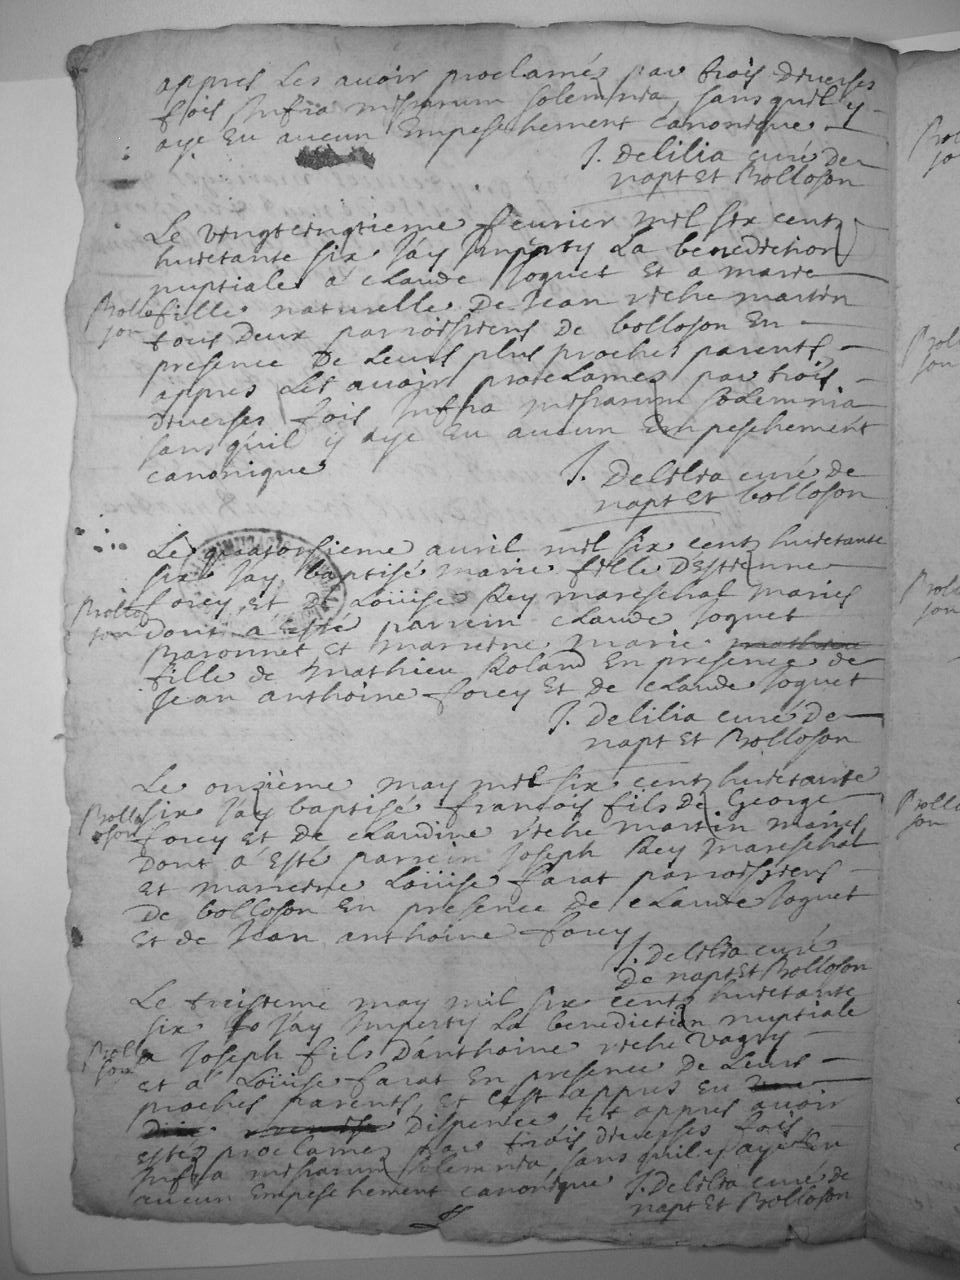 appres les avoir proclamés par trois diverses
fois Infra missarum solemnia, sans quil y
aye Eu aucun Empeschement canonique
J. Delilia curé de
napt Et Bolloson
Le vingtcinqtieme feurier mil six centz
huictante six Jay Imperty La benediction
nuptiale à claude Joquet Et a marie
fille naturelle De Jean viche martin
Bollo
son
tous Deux parroissiens de bolloson En
presence De Leurs plus proches parents
appres Les avoir proclamez par trois
diverses fois Infra missarum solemnia
sans qu'il y aye Eu aucun Empeschement
canonique
J. Delilia curé de
napt Et bolloson
Le quatorsieme avril mil six centz huictante
six Jay baptisé marie fille D'Estienne
forey, Et De Loüise Rey mareschal mariés
Bollo
son
dont a Esté parrein claude Joquet
Baronnet Et marreine marie
fille de Mathieu Roland En presence de
Jean anthoine forey Et de claude Joquet
J. Delilia curé De
napt Et Bolloson
Le onzieme may mil six centz huictante
six Jay baptisé francois fils de George
Bollo
son
forey Et de claudine viche martin mariés
Dont a Esté parrein Joseph Rey Mareschal
Et marreine Loüise farat parroissiens
De bolloson En presence de claude Joquet
Et de Jean anthoine forey
J. Delilia curé
De napt Et Bolloson
Le treisieme may mil six centz huictante
six Jay Imperty La benediction nuptiale
Bollo
son
a Joseph fils D'anthoine viche vagny
Et a Loüise farat En presence de Leurs
proches parents, Et c'est appres Eu
Dispence Et appres avoir
estez proclamez par trois diverses fois
Infra missarum solemnia, sans quil y aye Eu
aucun Empeschement canonique
J. Delilia curé de
napt Et Bolloson